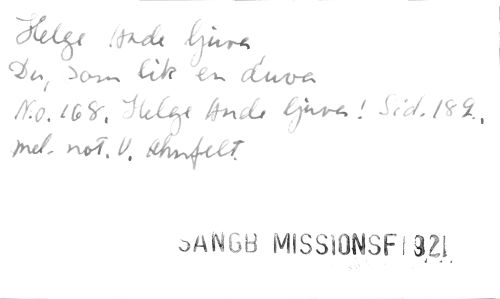 Helge Ande ljuva
Du, som lik en duva
No. 168. Helge Ande ljuva! Sid. 189.,
mel. not. V. Ahnfelt.
SANGB MISSIONSF 1921